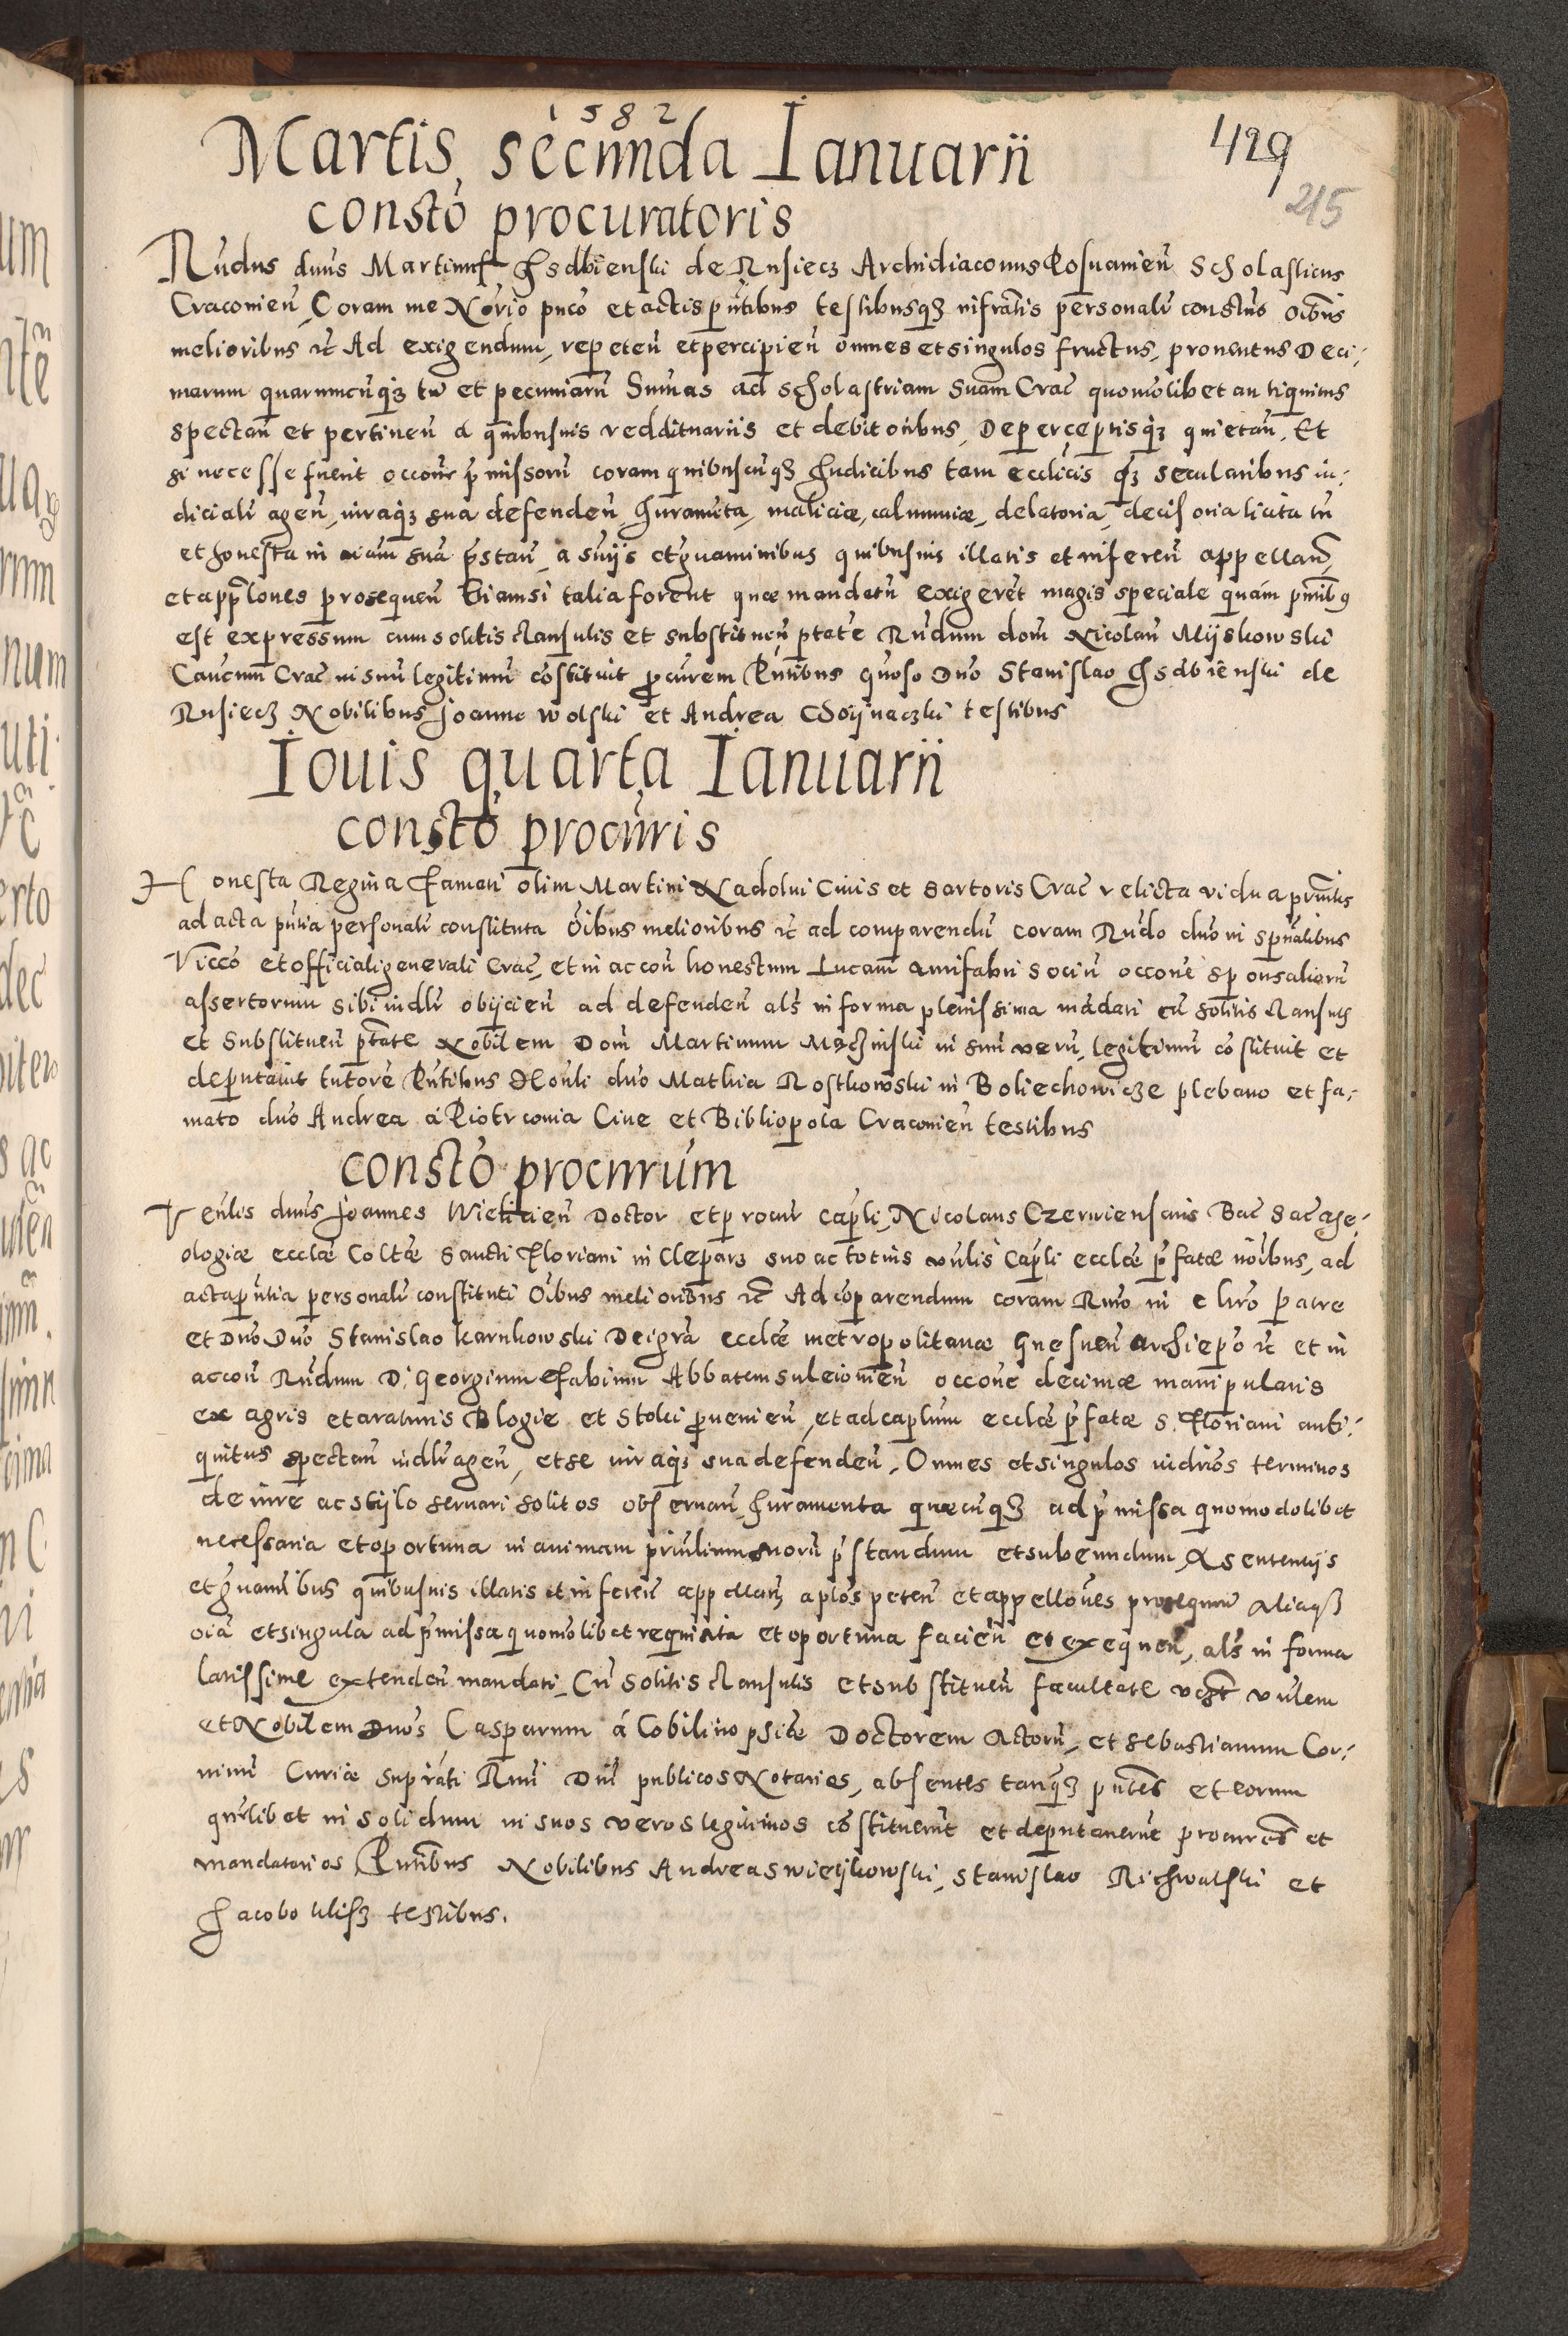 1582
Martis secunda Ianuarii
429
215
constō procuratoris
Rūdus dnūs Martinus Isdbienski de Rusiecz Archidiaconus Posnanień Scholasticus
Cracovień Coram me Norio pnco et actis pntibus testibusqz infrātis personalr constūs oībus
melioribus rc Ad exigendum, repeteń et percipień omnes et singulos fructus, proventus Deci-
marum quarumcunqz tū et pecuniarū Sumas ad scholastriam suam Crac quomolibet antiquitus
spectań et pertineń a quibusuis reddituariis et debitoribus, De perceptisqz quietań, Et
si necesse fuerit occone pmissorū coram quibuscūqz Judicibus tam ecclicis qz secularibus iu-
dicialr ageń, iuraqz sua defendeń, Juramēta, maliciæ, calumniæ, delatoria, decisoria licita tn
et honesta in aiam suā pstań, a sniis et guaminibus quibusuis illatis et infereń appellań
et applones prosequeń Etiamsi talia forent quæ mandatū exigerēt magis speciale quám pntibus
est expressum cum solitis clausulis et substitueń ptate Rūdum dom Nicolaū Mijskowski
Cancum Crac in suū legitimū cōstituit procurem Pntibus gnoso Dno Stanislao Isdbienski de
Rusiecz Nobilibus Joanne Wolski et Andrea Woijnaczki testibus
Iouis quarta Ianuarii
constō procuris
Honesta Regina famati olim Martini Nadolni Ciuis et sartoris Crac relicta vidua
ad acta pntia personalr constituta oibus melioribus rc ad comparendū coram Rūdo dno in spualibus
Vicco et officiali generali Crac, et in accoń honestum Lucam Aurifabri sociū occone sponsaliorū
assertorum sibi iudlr obijcień ad defendeń als in forma plenissima mādati cū solitis clausulis
et substitueń ptate Nobilem Dom Martinum Męczinski in suū verū, legitimū cōstituit et
deputauit tutorē Pntibus Hōnli dno Mathia Rostkowski in Boliechowicze plebano et fa-
mato dno Andrea á Piotrconia Ciue et Bibliopola Cracovień testibus
constō procurum
Venlis dnus Joannes Wielicień Doctor et procur capli, Nicolaus Czerwienscius Bac Sac The-
ologiæ ecclæ Coltæ Sancti Floriani in Cleparz suo ac totius vnlis Capli ecclæ pfatæ noībus, ad
acta pntia personalr constituti Oibus melioribus rc Ad cōparendum coram Rmo in Chro patre
et Dno Dno Stanislao Karnkowski Dei gra ecclæ metropolitanæ Gnesneń archiepo rc et in
accoń Rūdum D. Georgium Fabium Abbatem Suleioweń occone decimæ manipularis
ex agris et araturis Blogie et Stolci proueniēń, et ad caplum ecclæ pfatæ S. Floriani anti-
quitus spectań iudlr ageń, et se iuraqz sua defendeń, Omnes et singulos iudrios terminos
de iure ac stijlo seruari solitos obseruań, Juramenta quæcūqz ad pmissa quomodolibet
necessaria et oportuna in animam prinlium suorū pstandum et subeundum, A sententijs
et guamibus quibusuis illatis et infereń appellań aplos peteń et appellones prosequeń Aliaqz
oia et singula ad pmissa quomolibet requisita et oportuna facień et exequeń, als in forma
latissime extendeń mandati, Cū solitis clausulis et substitueń facultate Venlem
et Nobilem Dnos Casparum á Cobilino psidæ Doctorem Actorū, et Sebastianum Cor-
ninū Curiæ suprāti Rmi Dni publicos Notarios, absentes tanqz pntes et eorum
quēlibet in solidum in suos veros legitimos cōstituerūt et deputauerūt procures et
mandatarios Pntibus Nobilibus Andrea Swiecijkowski, Stanislao Richwalski et
Jacobo testibus.